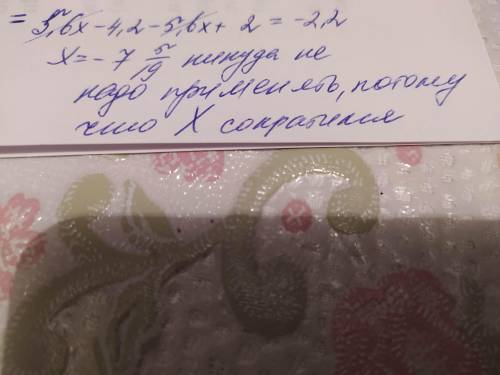 = 5,6x - 4,2 - 5,6x + 2 = -2,2
X = - 7 5/19 никуда не
надо применять, потому
что X сократился